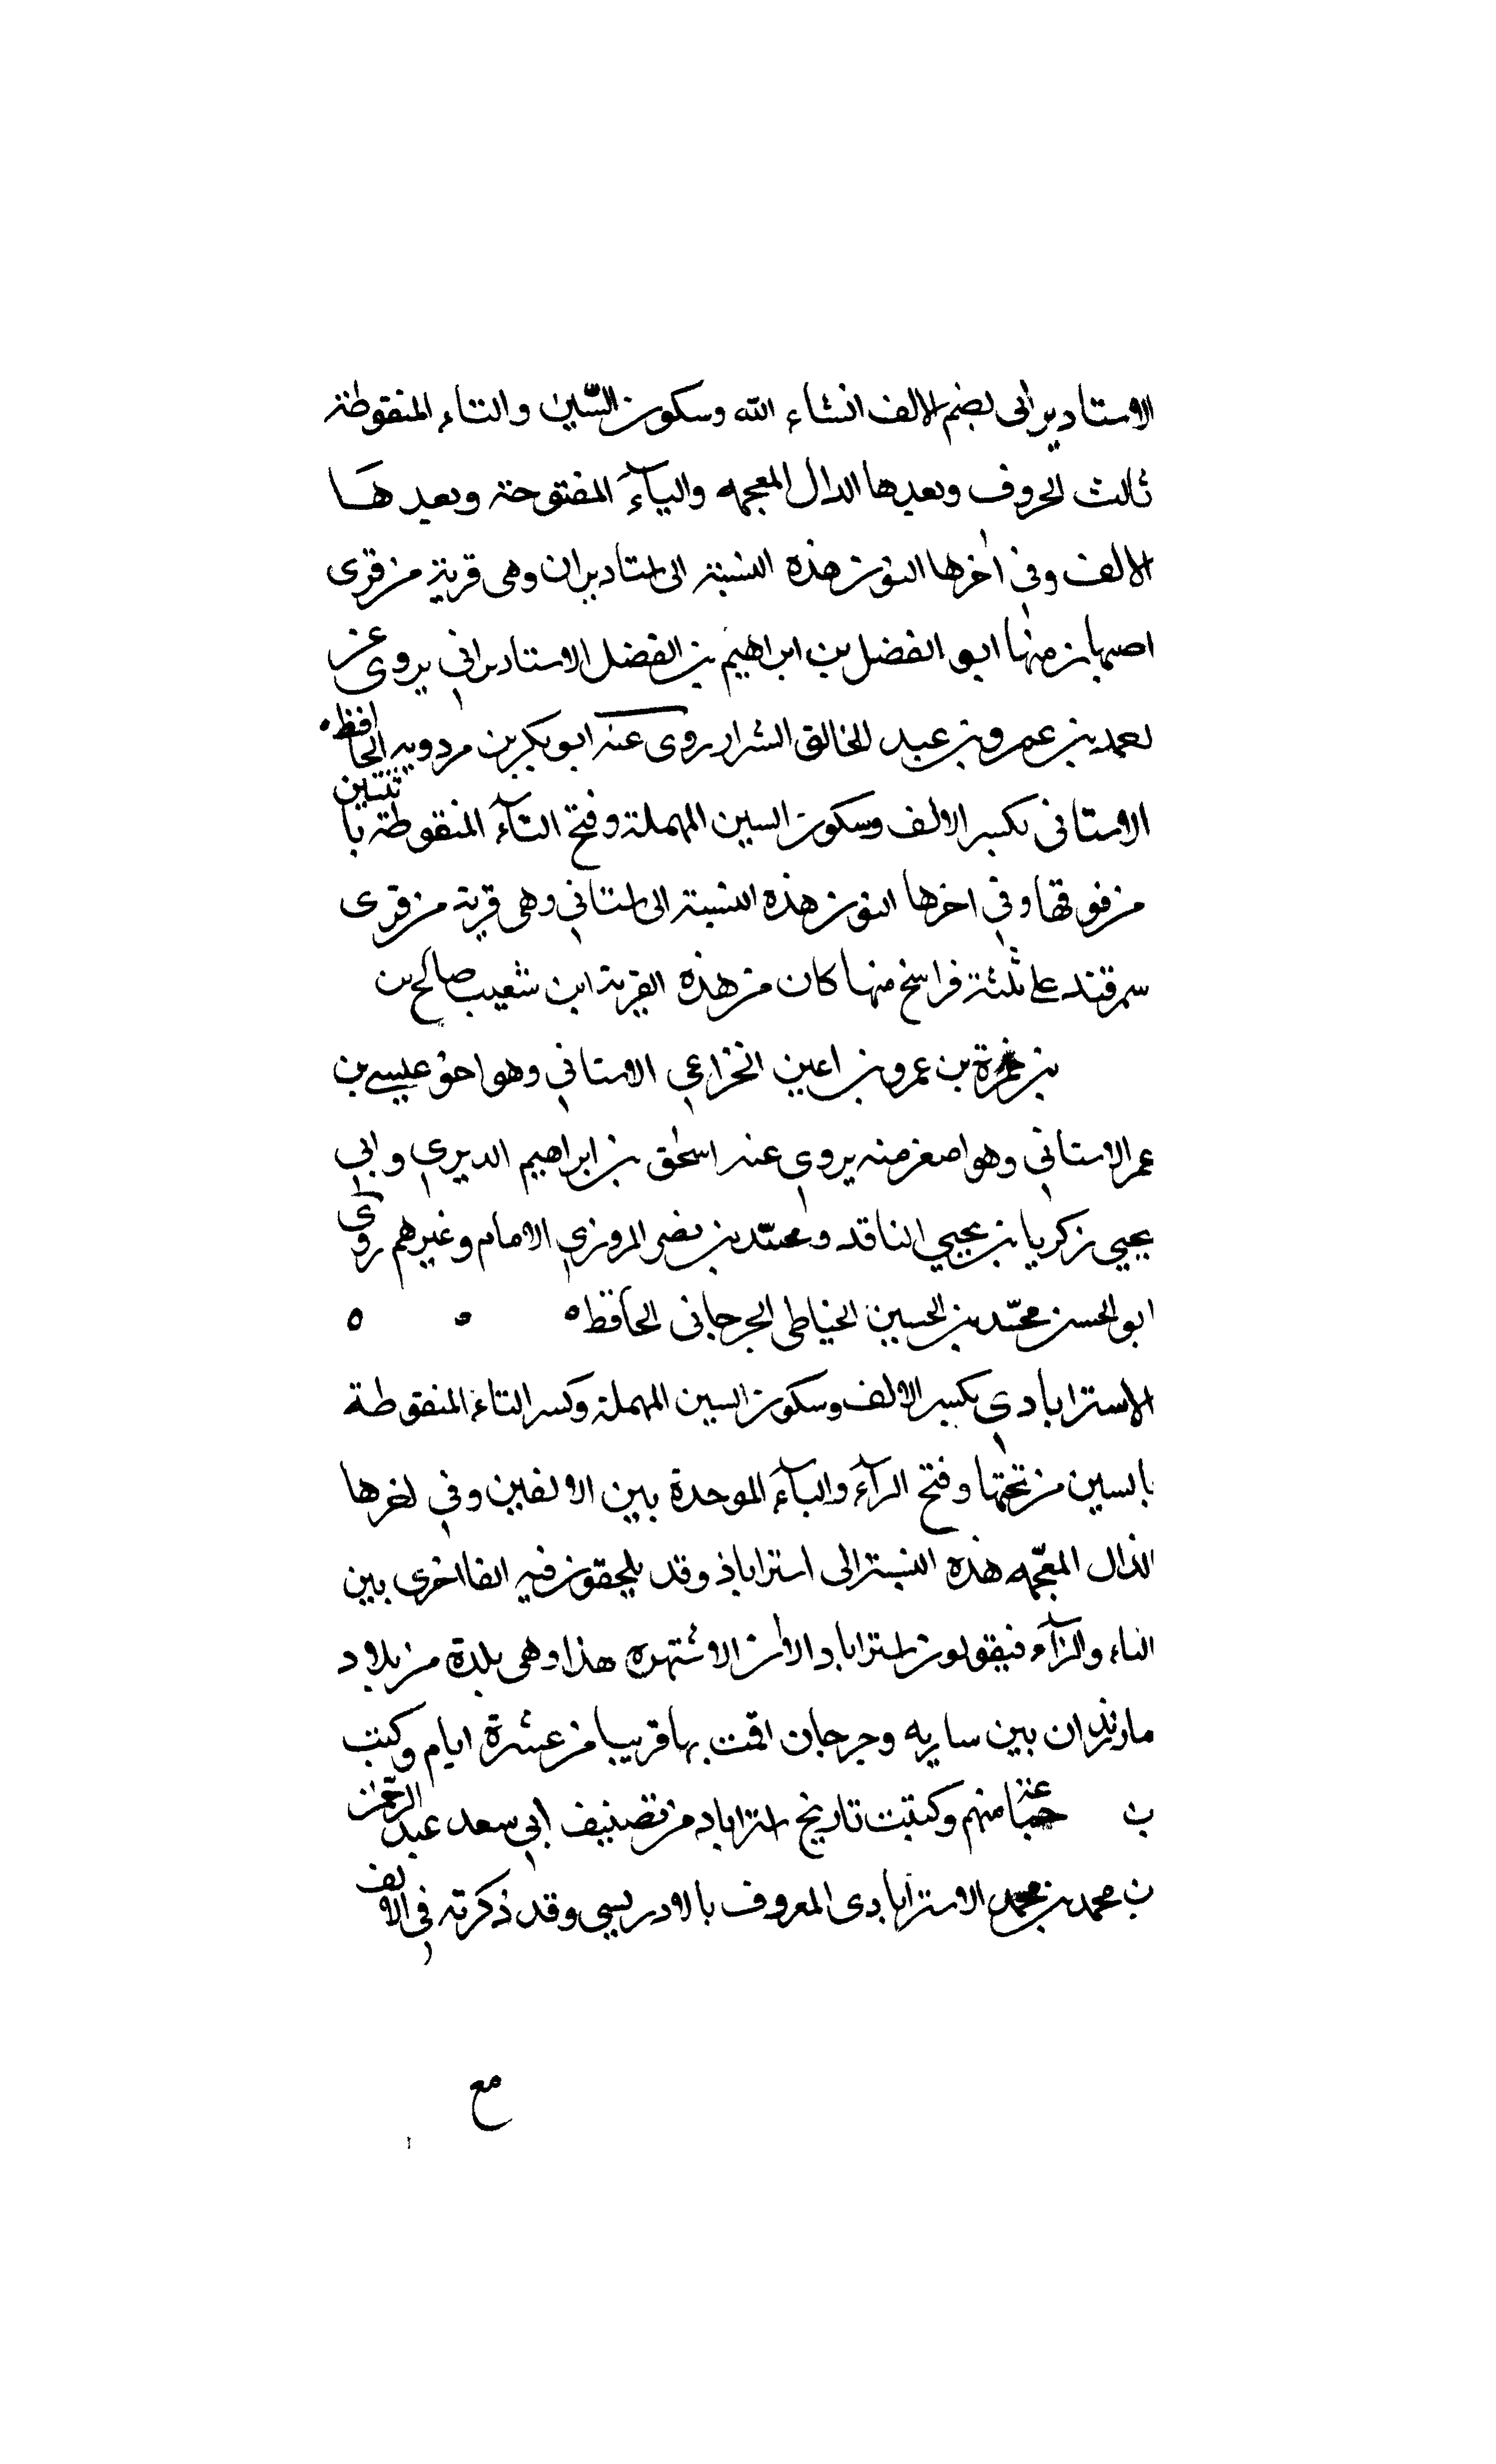 الاستاديراني بضم الالف انشاء الله وسكون السّين والتاء المنقوطة
ثالث الحروف وبعدها الدال المعجمه والياء المفتوحة وبعدها
الالف وفي اخرها النون هذه النسبة الى استاديران وهى قرية من قرى
اصبهان منها ابو الفضل بن ابراهيم بن الفضل الاستاديراني يروى عن
بن عمرو بن عبد الخالق روى عنه ابو بكر بن مردويه الحافظ
الاستاني بكسر الالف وسكون السين المهملة وفتح التآء المنقوطة باثنتين
من فوقها وفي اخرها النون هذه النسبة الى استاني وهى قرية من قرى
سمرقند على ثلثة فراسخ منها كان من هذه القرية ابن شعيب صالح بن
بن حمزة بن عمرو بن اعين الخزاعي الاستاني وهو اخو عيسى بن
عمر الاستاني وهو اصغر منه يروى عنه اسحق بن ابراهيم الديري وابي
يحيي زكريا بن يحيي الناقد ومحمّد بن نصر المروزي الامام وغيرهم روى
ابو الحسن محمّد بن الحسين الخياطى الجرجانى الحافظ ه ه ه
الاسترابادي بكسر الالف وسكون السين المهملة وكسر التاء المنقوطة
بالسين من تحتها وفتح الرآء والبآء الموحدة بين الالفين وفي اخرها
الذال المعجمه هذه النسبة الى استراباذ وقد يلحقون فيه الفا اخرى بين
التاء والرآء فيقولون استراباد الا ان الاشتهر هذا وهى بلدة من بلاد
مازندران بين ساريه وجرجان اقمت بها قريبا من عشرة ايام وكتب
ب عن منهم وكتبت تاريخ استراباد من تصنيف أبي سعد عبد الرحمن
بن محمد بن محمد الاسترابادى المعروف بالادريسي وقد ذكرته في الالف
مع